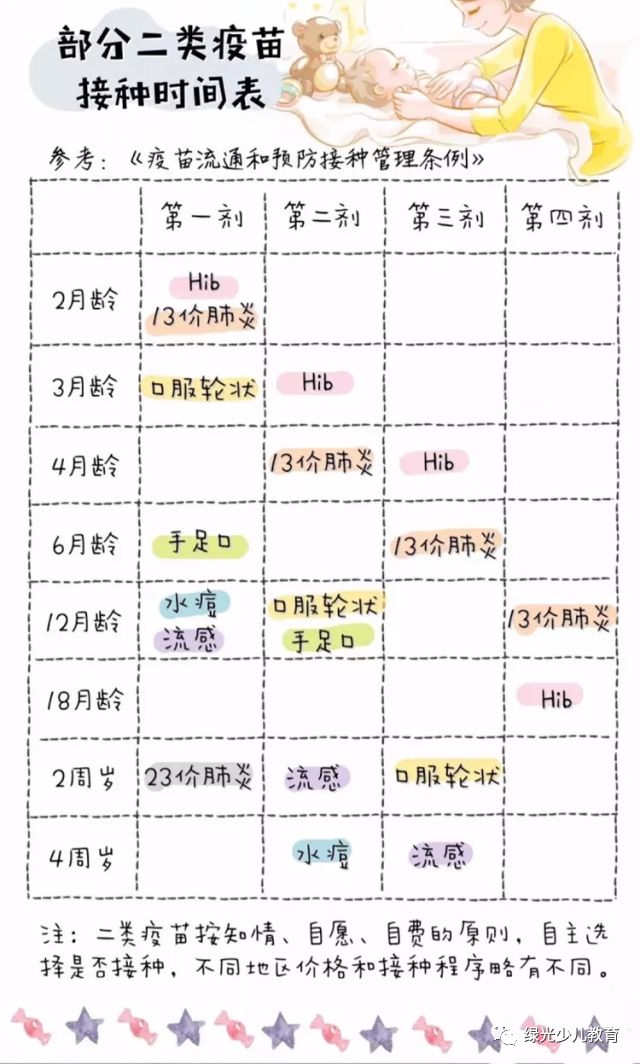 部分二类疫苗
接种时间表
参考：《疫苗流通和预防接种管理条例》
第一剂 第二剂 第三剂 第四剂
2月龄 Hib
13价肺炎
3月龄 口服轮状 Hib
4月龄 13价肺炎 Hib
6月龄 手足口 13价肺炎
12月龄 水痘 口服轮状 13价肺炎
流感 手足口
18月龄 Hib
2周岁 23价肺炎 流感 口服轮状
4周岁 水痘 流感
注：二类疫苗按知情、自愿、自费的原则，自主选
择是否接种，不同地区价格和接种程序略有不同。
绿光少儿教育